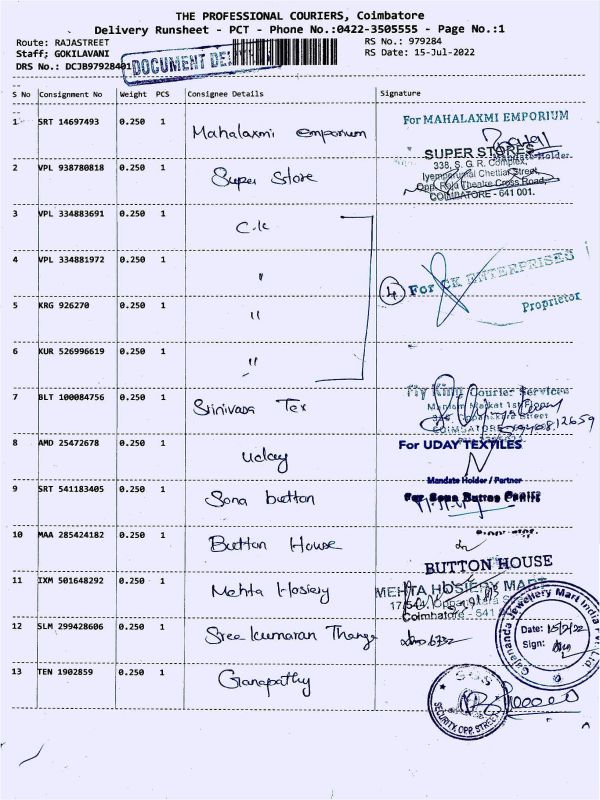 THE PROFESSIONAL COURIERS, Coimbatore
Delivery Runsheet - PCT - Phone No.:0422-3505555 - Page No.:1
Route: RAJASTREET RS No.: 979284
Staff; GOKILAVANI RS Date: 15-Jul-2022
DRS No.: DCJB97928401 DOCUMENT
S No Consignment No Weight PCS Consignee Details Signature
1 SRT 14697493 0.250 1 Mahalaxmi emporium For MAHALAXMI EMPORIUM
Mandate Holder.
2 VPL 938780818 0.250 1 Super Store SUPER STORES
338, S. G. R. Complex,
Iyemperumal Chettiar Street,
Opp. Raja Theatre Cross Road,
COIMBATORE - 641 001.
3 VPL 334883691 0.250 1 C.K
4 VPL 334881972 0.250 1 " 4 For CK ENTERPRISES
Proprietor
5 KRG 926270 0.250 1 "
6 KUR 526996619 0.250 1 "
7 BLT 100084756 0.250 1 Srinivasa Tex Fly King Courier Services
Market 1st Floor
Street
COIMBATORE
8 AMD 25472678 0.250 1 Uday For UDAY TEXTILES
Mandate Holder / Partner
9 SRT 541183405 0.250 1 Sona button For Sona Button Centre
10 MAA 285424182 0.250 1 Button House
BUTTON HOUSE
11 IXM 501648292 0.250 1 Mehta Hosiery MEHTA HOSIERY MART
Coimbatore - 641
12 SLM 299428606 0.250 1 Sree kumaran Thanga
Jewellery Mart India Pvt. Ltd
Date: 15/7/22
Sign:
13 TEN 1902859 0.250 1 Ganapathy
SECURITY, OPP. STREET